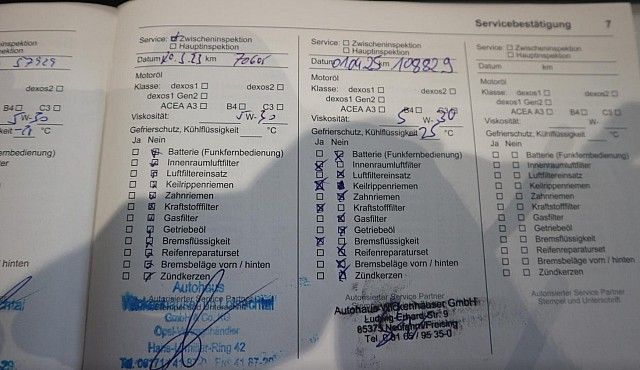 Servicebestätigung 7
57929
dexos2 ☐
B4 ☐ C3 ☐
5 W-30
°C
/ hinten
Service: ☒ Zwischeninspektion
☐ Hauptinspektion
Datum 3.23 km
Motoröl
Klasse: dexos1 ☐ dexos2 ☐
dexos1 Gen2 ☐
ACEA A3 ☐ B4 ☐ C3 ☐
Viskosität: 5 W-30
Gefrierschutz, Kühlflüssigkeit °C
Ja Nein
Batterie (Funkfernbedienung)
Innenraumluftfilter
Luftfiltereinsatz
Keilrippenriemen
Zahnriemen
Kraftstofffilter
Gasfilter
Getriebeöl
Bremsflüssigkeit
Reifenreparaturset
Bremsbeläge vorn / hinten
Zündkerzen
Autohaus
Autorisierter Service Partner
GmbH & Co. KG
Opel-Vertragshändler
Ring 42
Service: ☐ Zwischeninspektion
☐ Hauptinspektion
Datum 01.04.25 km 108829
Motoröl
Klasse: dexos1 ☐ dexos2 ☐
dexos1 Gen2 ☐
ACEA A3 ☐ B4 ☐ C3
Viskosität: 5 W-30
Gefrierschutz, Kühlflüssigkeit 25 °C
Ja Nein
Batterie (Funkfernbedienung)
Innenraumluftfilter
Luftfiltereinsatz
Keilrippenriemen
Zahnriemen
Kraftstofffilter
Gasfilter
Getriebeöl
Bremsflüssigkeit
Reifenreparaturset
Bremsbeläge vorn / hinten
Zündkerzen
Autorisierter Service Partner
Autohaus Wickenhäuser GmbH
Ludwig-Erhard-Str. 9
85375 Neufahrn/Freising
Tel. 0 81 65 / 95 35-0
Service: ☐ Zwischeninspektion
☐ Hauptinspektion
Datum km
Motoröl
Klasse: dexos1 ☐ dexos2 ☐
dexos1 Gen2 ☐
ACEA A3 ☐ B4 ☐ C3 ☐
Viskosität: W-
Gefrierschutz, Kühlflüssigkeit °C
Ja Nein
☐ ☐ Batterie (Funkfernbedienung)
☐ ☐ Innenraumluftfilter
☐ ☐ Luftfiltereinsatz
☐ ☐ Keilrippenriemen
☐ ☐ Zahnriemen
☐ ☐ Kraftstofffilter
☐ ☐ Gasfilter
☐ ☐ Getriebeöl
☐ ☐ Bremsflüssigkeit
☐ ☐ Reifenreparaturset
☐ ☐ Bremsbeläge vorn / hinten
☐ ☐ Zündkerzen
Autorisierter Service Partner
Stempel und Unterschrift